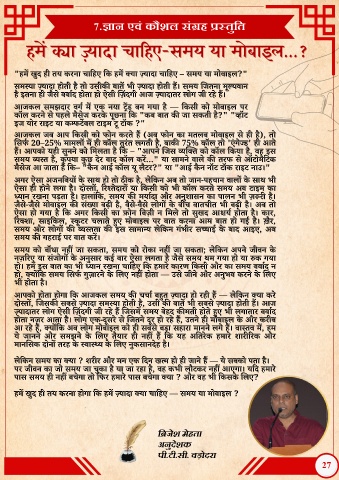 7.ज्ञान एवं कौशल संग्रह प्रस्तुति
हमें क्या ज़्यादा चाहिए-समय या मोबाइल...?
"हमें खुद ही तय करना चाहिए कि हमें क्या ज़्यादा चाहिए – समय या मोबाइल?"
समस्या ज़्यादा होती है तो उसीकी बातें भी ज़्यादा होती हैं। समय जितना मूल्यवान
है इतना ही जैसे बर्बाद होता हो ऐसी ज़िंदगी आज ज़्यादातर लोग जी रहे हैं।
आजकल समझदार वर्ग में एक नया ट्रेंड बन गया है — किसी को मोबाइल पर
कॉल करने से पहले मैसेज करके पूछना कि "कब बात की जा सकती है?" "व्हॉट
इज योर राइट या कम्फर्टेबल टाइम टू टॉक ?"
आजकल जब आप किसी को फोन करते हैं (अब फोन का मतलब मोबाइल से ही है), तो
सिर्फ 20–25% मामलों में ही कॉल तुरंत लगती है, बाकी 75% कॉल तो 'एंगेज्ड' ही आते
हैं। आपको यही सुनने को मिलता है कि – "आपने जिस व्यक्ति को कॉल किया है, वह इस
समय व्यस्त है, कृपया कुछ देर बाद कॉल करें..." या सामने वाले की तरफ से ऑटोमैटिक
मैसेज आ जाता है कि– "कैन आई कॉल यू लैटर?" या "आई कैन नॉट टॉक राइट नाउ।"
अगर ऐसा अजनबियों के साथ हो तो ठीक है, लेकिन अब तो जान-पहचान वालों के साथ भी
ऐसा ही होने लगा है। दोस्तों, रिश्तेदारों या किसी को भी कॉल करते समय अब टाइम का
ध्यान रखना पड़ता है। हालांकि, समय की मर्यादा और अनुशासन का पालन भी ज़रूरी है।
जैसे-जैसे मोबाइल की संख्या बढ़ी है, वैसे-वैसे लोगों के बीच बातचीत भी बढ़ी है। अब तो
ऐसा हो गया है कि अगर किसी का फ़ोन बिज़ी न मिले तो सुखद आश्चर्य होता है। कार,
रिक्शा, साइकिल, स्कूटर चलाते हुए मोबाइल पर बात करना आम बात हो गई है। ख़ैर,
समय और लोगों की व्यस्तता की इस सामान्य लेकिन गंभीर सच्चाई के बाद आइए, अब
समय की गहराई पर बात करें।
समय को बाँधा नहीं जा सकता, समय को रोका नहीं जा सकता; लेकिन अपने जीवन के
नज़रिए या संजोगों के अनुसार कई बार ऐसा लगता है जैसे समय थम गया हो या रुक गया
हो। हमें इस बात का भी ध्यान रखना चाहिए कि हमारे कारण किसी और का समय बर्बाद न
हो, क्योंकि समय सिर्फ गुज़ारने के लिए नहीं होता — उसे जीने और अनुभव करने के लिए
भी होता है।
आपको होता होगा कि आजकल समय की चर्चा बहुत ज़्यादा हो रही है — लेकिन क्या करे
दोस्तों, जिसकी सबसे ज़्यादा समस्या होती है, उसी की बातें भी सबसे ज़्यादा होती हैं। अब
ज़्यादातर लोग ऐसी ज़िंदगी जी रहे हैं जिसमें समय बेहद कीमती होते हुए भी लगातार बर्बाद
होता नज़र आता है। लोग एक-दूसरे से जितने दूर हो रहे हैं, उतने ही मोबाइल के और करीब
आ रहे हैं, क्योंकि अब लोग मोबाइल को ही सबसे बड़ा सहारा मानने लगे हैं। वास्तव में, हम
ये जानने और समझने के लिए तैयार ही नहीं हैं कि यह अतिरेक हमारे शारीरिक और
मानसिक दोनों तरह के स्वास्थ्य के लिए नुकसानदेह है।
लेकिन समय का क्या ? शरीर और मन एक दिन खत्म हो ही जाने हैं — ये सबको पता है।
पर जीवन का जो समय जा चुका है या जा रहा है, वह कभी लौटकर नहीं आएगा। यदि हमारे
पास समय ही नहीं बचेगा तो फिर हमारे पास बचेगा क्या ? और वह भी किसके लिए?
हमें खुद ही तय करना होगा कि हमें ज़्यादा क्या चाहिए — समय या मोबाइल ?
ब्रिजेश मेहता
अनुदेशक
पी.टी.सी. वड़ोदरा
27